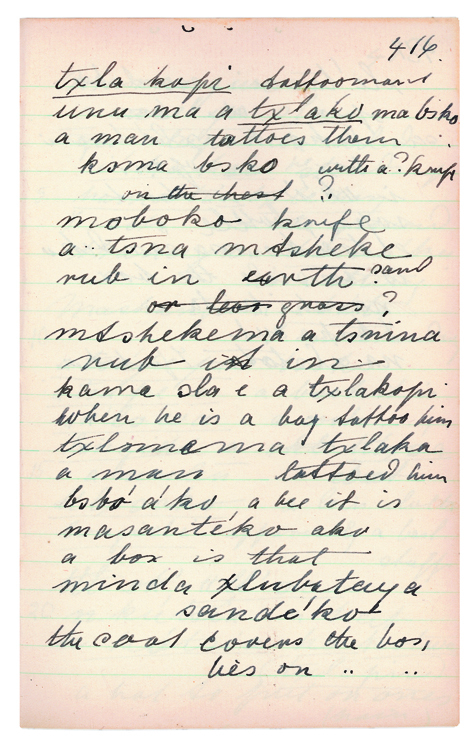 416.
txla kopi tattooment
unu ma a tx'ako ma bsko
a man tattoes them
koma bsko with a? knife
on the chest ?
moboko knife
a tsna mtsheke
rub in earth? sand
or bor grass ?
mtshekema a tsnina
rub it in
kame sla e a txlakopi
when he is a boy tattoo him
txlsmema txlaka
a man tattoed him
bsbó áko, a bee it is
masantéko ako
a box is that
minda xlubataya
sandéko
the coat covers the box,
lies on ,, ,,